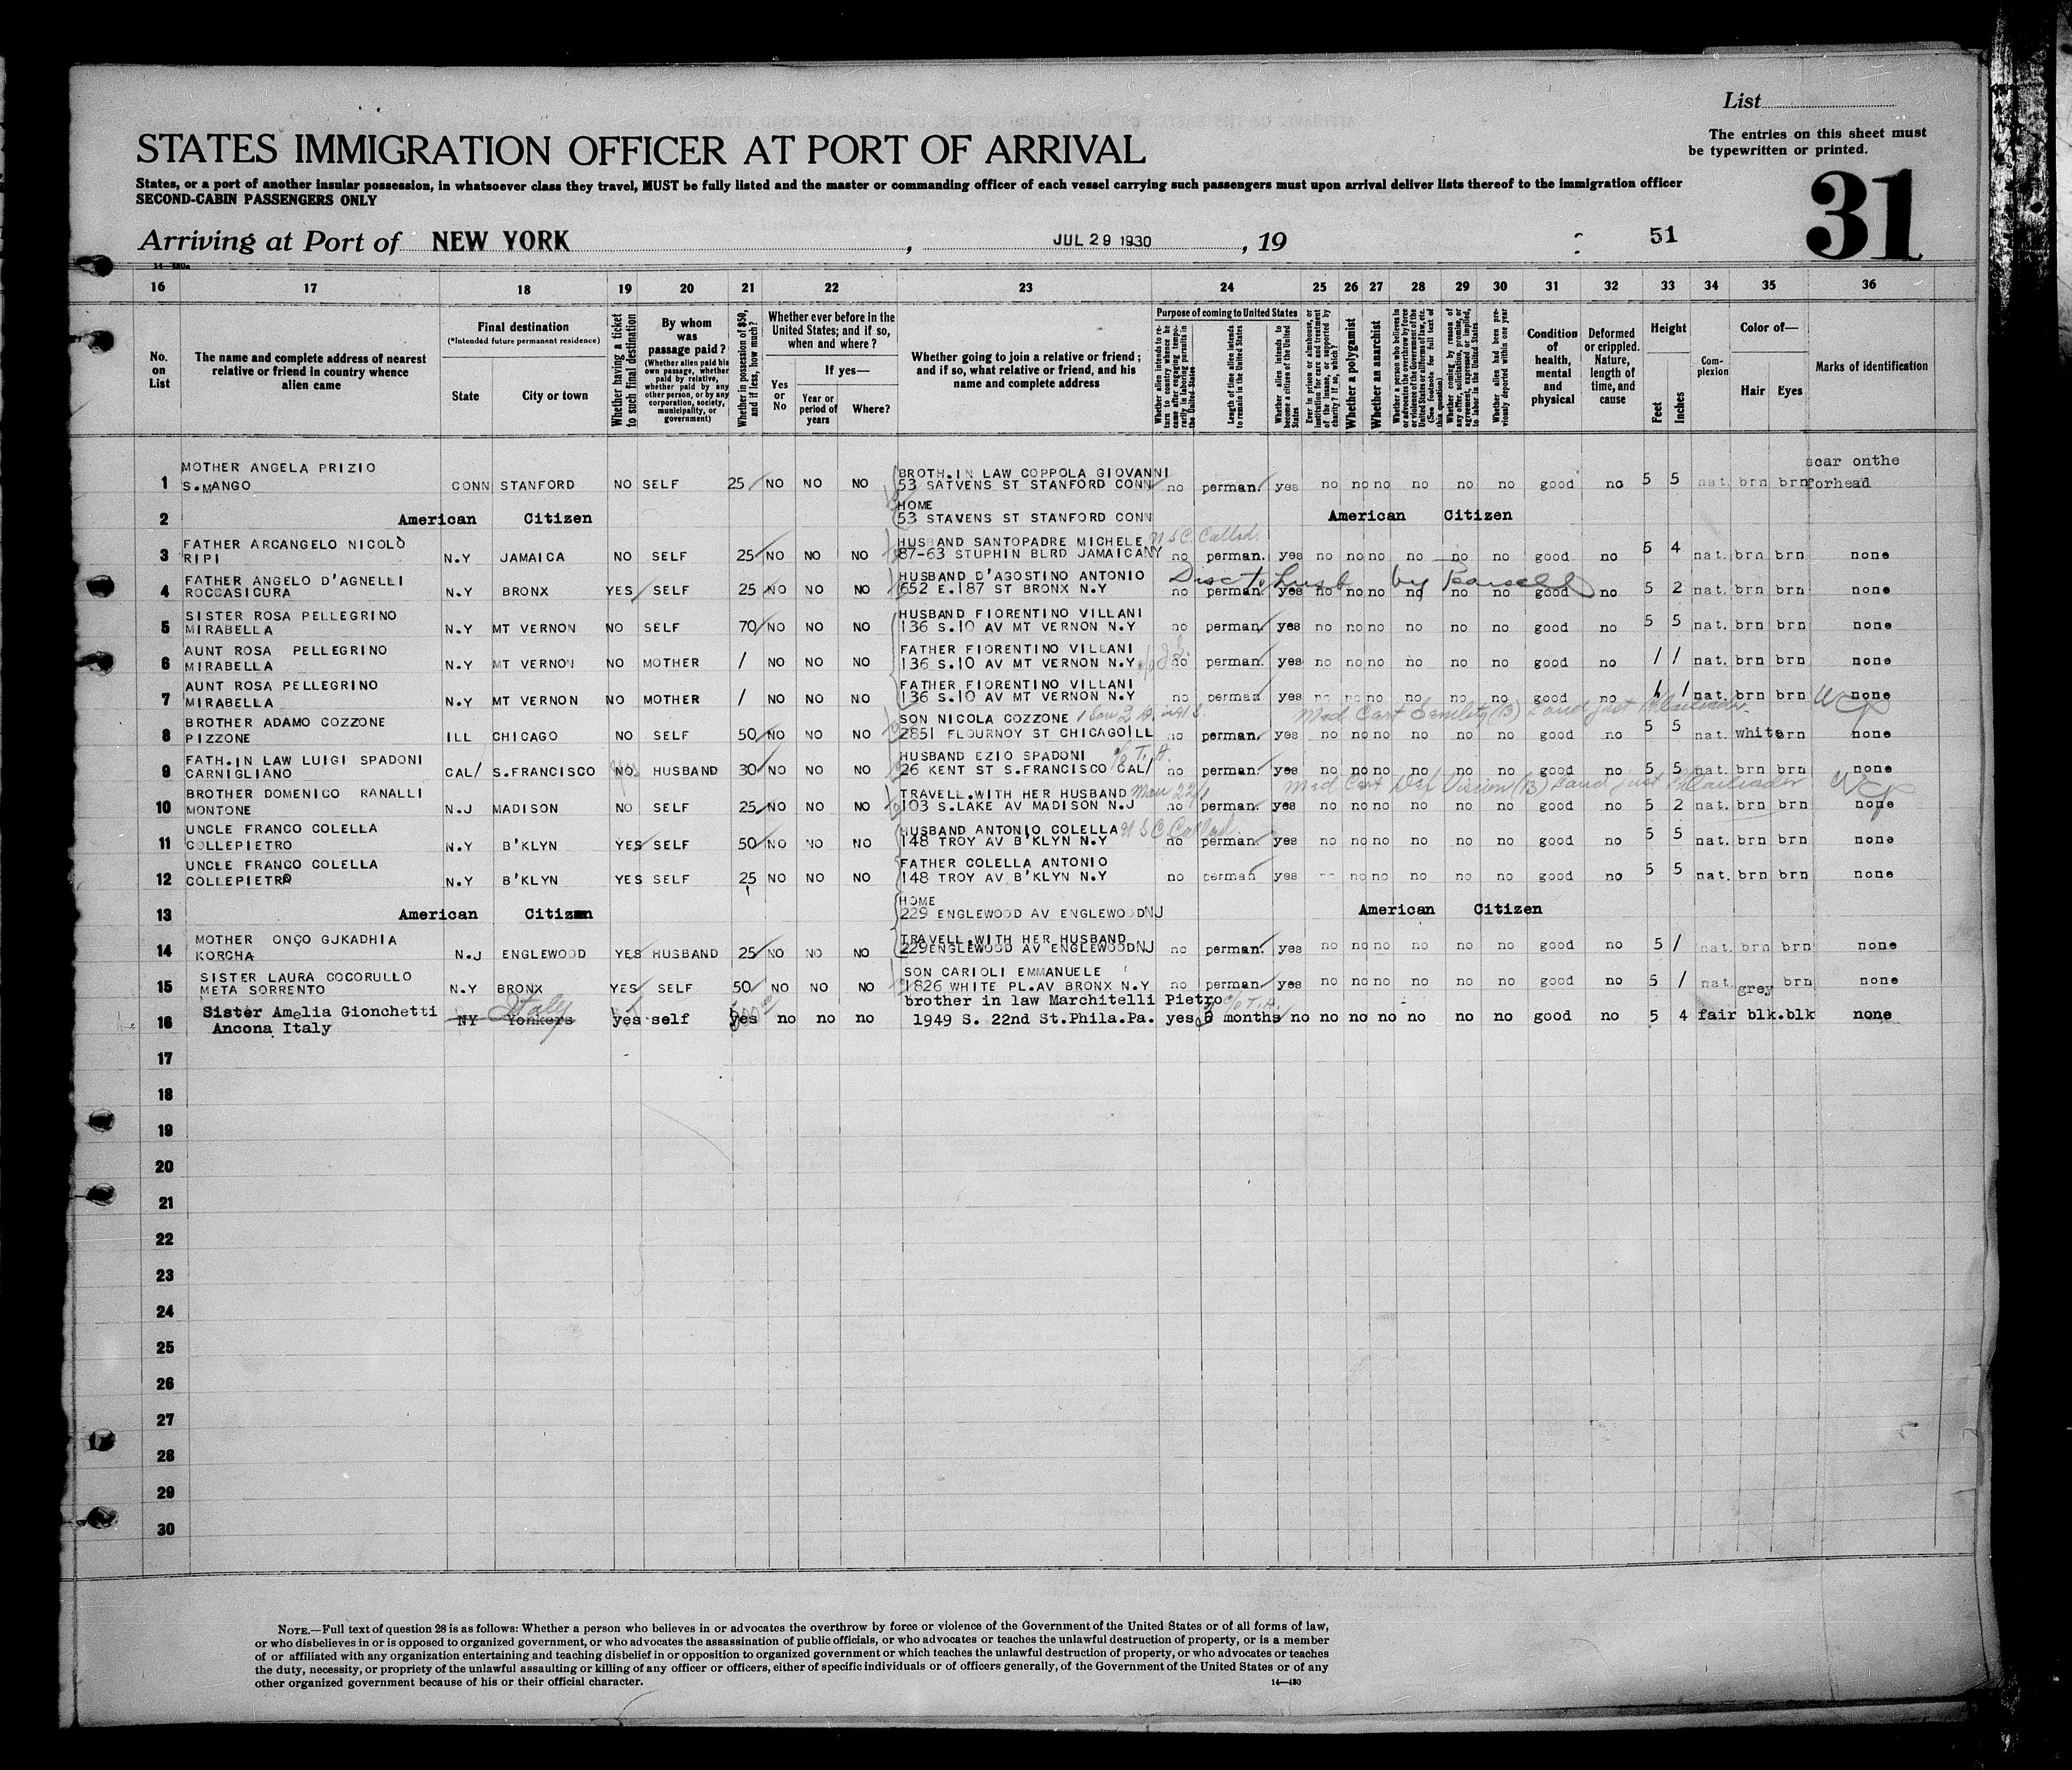 List
The entries on this sheet must
be typewritten or printed.
STATES IMMIGRATION OFFICER AT PORT OF ARRIVAL
31
States, or a port of another insular possession, in whatsoever class they travel, MUST be fully listed and the master or commanding officer of each vessel carrying such passengers must upon arrival deliver lists thereof to the immigration officer
SECOND-CABIN PASSENGERS ONLY
Arriving at Port of NEW YORK, JUL 29 1930, 19 51
16 17 18 19 20 21 22 23 24 25 26 27 28 29 30 31 32 33 34 35 36
No. on List
The name and complete address of nearest relative or friend in country whence alien came
Final destination
(*Intended future permanent residence)
State
City or town
Whether having a ticket to such final destination
By whom was passage paid?
(Whether alien paid his own passage, whether paid by relative, whether paid by any other person, or by any corporation, society, municipality, or government)
Whether in possession of $50, and if less, how much?
Whether ever before in the United States; and if so, when and where?
Yes or No
If yes—
Year or period of years
Where?
Whether going to join a relative or friend; and if so, what relative or friend, and his name and complete address
Purpose of coming to United States
Whether alien intends to return to country whence he came after engaging temporarily in laboring pursuits in the United States
Length of time alien intends to remain in the United States
Whether alien intends to become a citizen of the United States
Ever in prison or almshouse, or institution for care and treatment of the insane, or supported by charity? If so, which?
Whether a polygamist
Whether an anarchist
Whether a person who believes in or advocates the overthrow by force or violence of the Government of the United States or all forms of law, etc. (See footnote for full text of this question)
Whether coming by reason of any offer, solicitation, promise, or agreement, expressed or implied, to labor in the United States
Whether alien had been previously deported within one year
Condition of health, mental and physical
Deformed or crippled. Nature, length of time, and cause
Height
Feet
Inches
Complexion
Color of—
Hair
Eyes
Marks of identification
MOTHER ANGELA PRIZIO BROTH.IN LAW COPPOLA GIOVANNI scar onthe
1 S.MANGO CONN STANFORD NO SELF 25 NO NO NO 53 SATVENS ST STANFORD CONN no perman. yes no no no no no no good no 5 5 nat. brn brn forhead
HOME
2 American Citizen 53 STAVENS ST STANFORD CONN American Citizen
FATHER ARCANGELO NICOLO HUSBAND SANTOPADRE MICHELE U S C Called.
3 RIPI N.Y JAMAICA NO SELF 25 NO NO NO 87-63 STUPHIN BLRD JAMAICANY no perman. yes no no no no no no good no 5 4 nat. brn brn none
FATHER ANGELO D'AGNELLI HUSBAND D'AGOSTINO ANTONIO
4 ROCCASICURA N.Y BRONX YES SELF 25 NO NO NO 652 E.187 ST BRONX N.Y no perman. yes no no no no no no good no 5 2 nat. brn brn none
SISTER ROSA PELLEGRINO HUSBAND FIORENTINO VILLANI
5 MIRABELLA N.Y MT VERNON NO SELF 70 NO NO NO 136 S.10 AV MT VERNON N.Y no perman. yes no no no no no no good no 5 5 nat. brn brn none
AUNT ROSA PELLEGRINO FATHER FIORENTINO VILLANI
6 MIRABELLA N.Y MT VERNON NO MOTHER / NO NO NO 136 S.10 AV MT VERNON N.Y no perman. yes no no no no no no good no / / nat. brn brn none
AUNT ROSA PELLEGRINO FATHER FIORENTINO VILLANI
7 MIRABELLA N.Y MT VERNON NO MOTHER / NO NO NO 136 S.10 AV MT VERNON N.Y no perman yes no no no no no no good no / / nat. brn brn none
BROTHER ADAMO COZZONE SON NICOLA COZZONE
8 PIZZONE ILL CHICAGO NO SELF 50 NO NO NO 2851 FLOURNOY ST CHICAGOILL no perman. yes no no no no no no good no 5 5 nat. white brn none
FATH.IN LAW LUIGI SPADONI HUSBAND EZIO SPADONI
9 CARNIGLIANO CAL/ S.FRANCISCO NO. HUSBAND 30 NO NO NO 26 KENT ST S.FRANCISCO CAL/ no perman. yes no no no no no no good no 5 5 nat. brn brn none
BROTHER DOMENICO RANALLI TRAVELL.WITH HER HUSBAND
10 MONTONE N.J MADISON NO SELF 25 NO NO NO 103 S.LAKE AV MADISON N.J no perman. yes no no no no no no good no 5 2 nat. brn brn none
UNCLE FRANCO COLELLA HUSBAND ANTONIO COLELLA U S C Called.
11 COLLEPIETRO N.Y B'KLYN YES SELF 50 NO NO NO 148 TROY AV B'KLYN N.Y no perman. yes no no no no no no good no 5 5 nat. brn brn none
UNCLE FRANCO COLELLA FATHER COLELLA ANTONIO
12 COLLEPIETRO N.Y B'KLYN YES SELF 25 NO NO NO 148 TROY AV B'KLYN N.Y no perman yes no no no no no no good no 5 5 nat. brn brn none
HOME
13 American Citizen 229 ENGLEWOOD AV ENGLEWOODNJ American Citizen
MOTHER ONÇO GJKADHIA TRAVELL.WITH HER HUSBAND
14 KORCHA N.J ENGLEWOOD YES HUSBAND 25 NO NO NO 229ENGLEWOOD AV ENGLEWOODNJ no perman. yes no no no no no no good no 5 / nat. brn brn none
SISTER LAURA COCORULLO SON CARIOLI EMMANUELE
15 META SORRENTO N.Y BRONX YES SELF 50 NO NO NO 1826 WHITE PL.AV BRONX N.Y no perman yes no no no no no no good no 5 / nat. grey brn none
Sister Amelia Gionchetti Italy brother in law Marchitelli Pietro
16 Ancona Italy NY Yonkers yes self yes no no no 1949 S. 22nd St.Phila.Pa. yes 6 months no no no no no no no good no 5 4 fair blk.blk none
17
18
19
20
21
22
23
24
25
26
27
28
29
30
NOTE.—Full text of question 28 is as follows: Whether a person who believes in or advocates the overthrow by force or violence of the Government of the United States or of all forms of law,
or who disbelieves in or is opposed to organized government, or who advocates the assassination of public officials, or who advocates or teaches the unlawful destruction of property, or is a member
of or affiliated with any organization entertaining and teaching disbelief in or opposition to organized government or which teaches the unlawful destruction of property, or who advocates or teaches
the duty, necessity, or propriety of the unlawful assaulting or killing of any officer or officers, either of specific individuals or of officers generally, of the Government of the United States or of any
other organized government because of his or their official character.
14—430